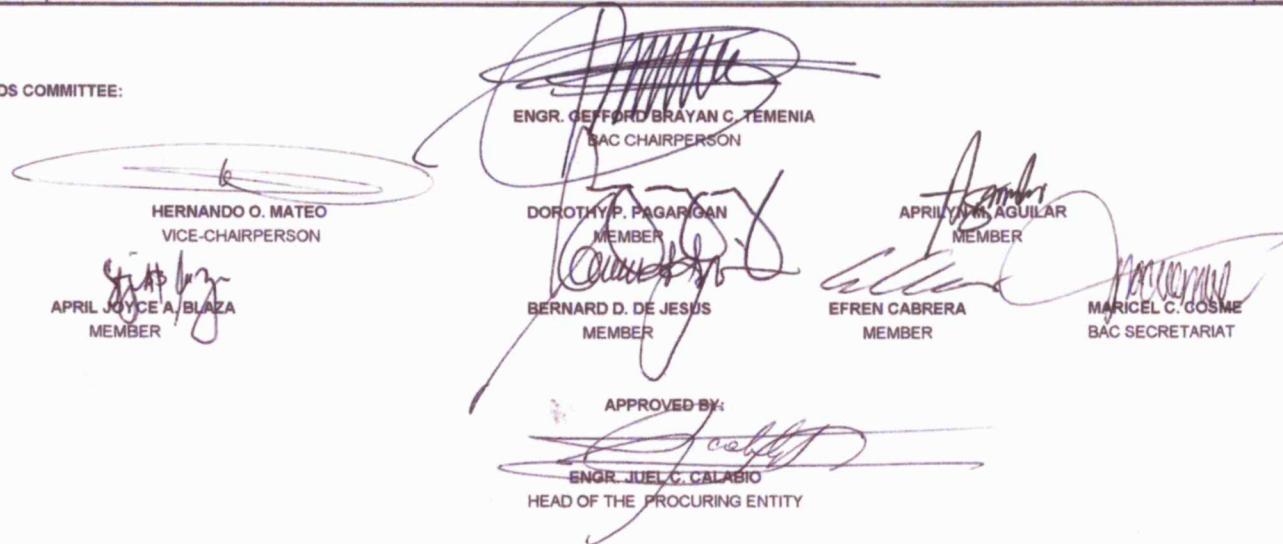 DS COMMITTEE:
ENGR. GEFFORD BRAYAN C. TEMENIA
BAC CHAIRPERSON
HERNANDO O. MATEO
VICE-CHAIRPERSON
DOROTHY P. PAGARIGAN
MEMBER
APRILYN M. AGUILAR
MEMBER
APRIL JOYCE A. BLAZA
MEMBER
BERNARD D. DE JESUS
MEMBER
EFREN CABRERA
MEMBER
MARICEL C. COSME
BAC SECRETARIAT
APPROVED BY:
ENGR. JUEL C. CALABIO
HEAD OF THE PROCURING ENTITY